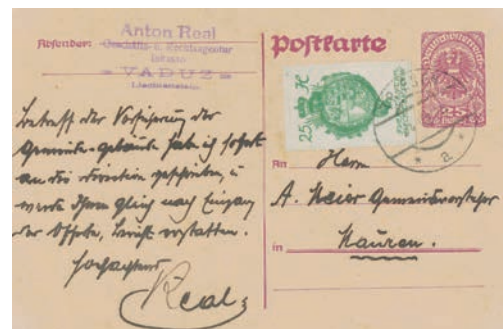 Absender:
Anton Real
Geschäfts- u. Rechtsagentur
VADUZ
Liechtenstein
Betreff der Versicherung der
Gemeinde-gebäude habe ich sofort
an die Direction geschrieben, u
werde Ihnen gleich nach Eingang
der Offerte, Bericht erstatten.
Hochachtend
Real
Postkarte
25 H
25
An Herrn
A. Meier Gemeindevorsteher
in Mauren.
a